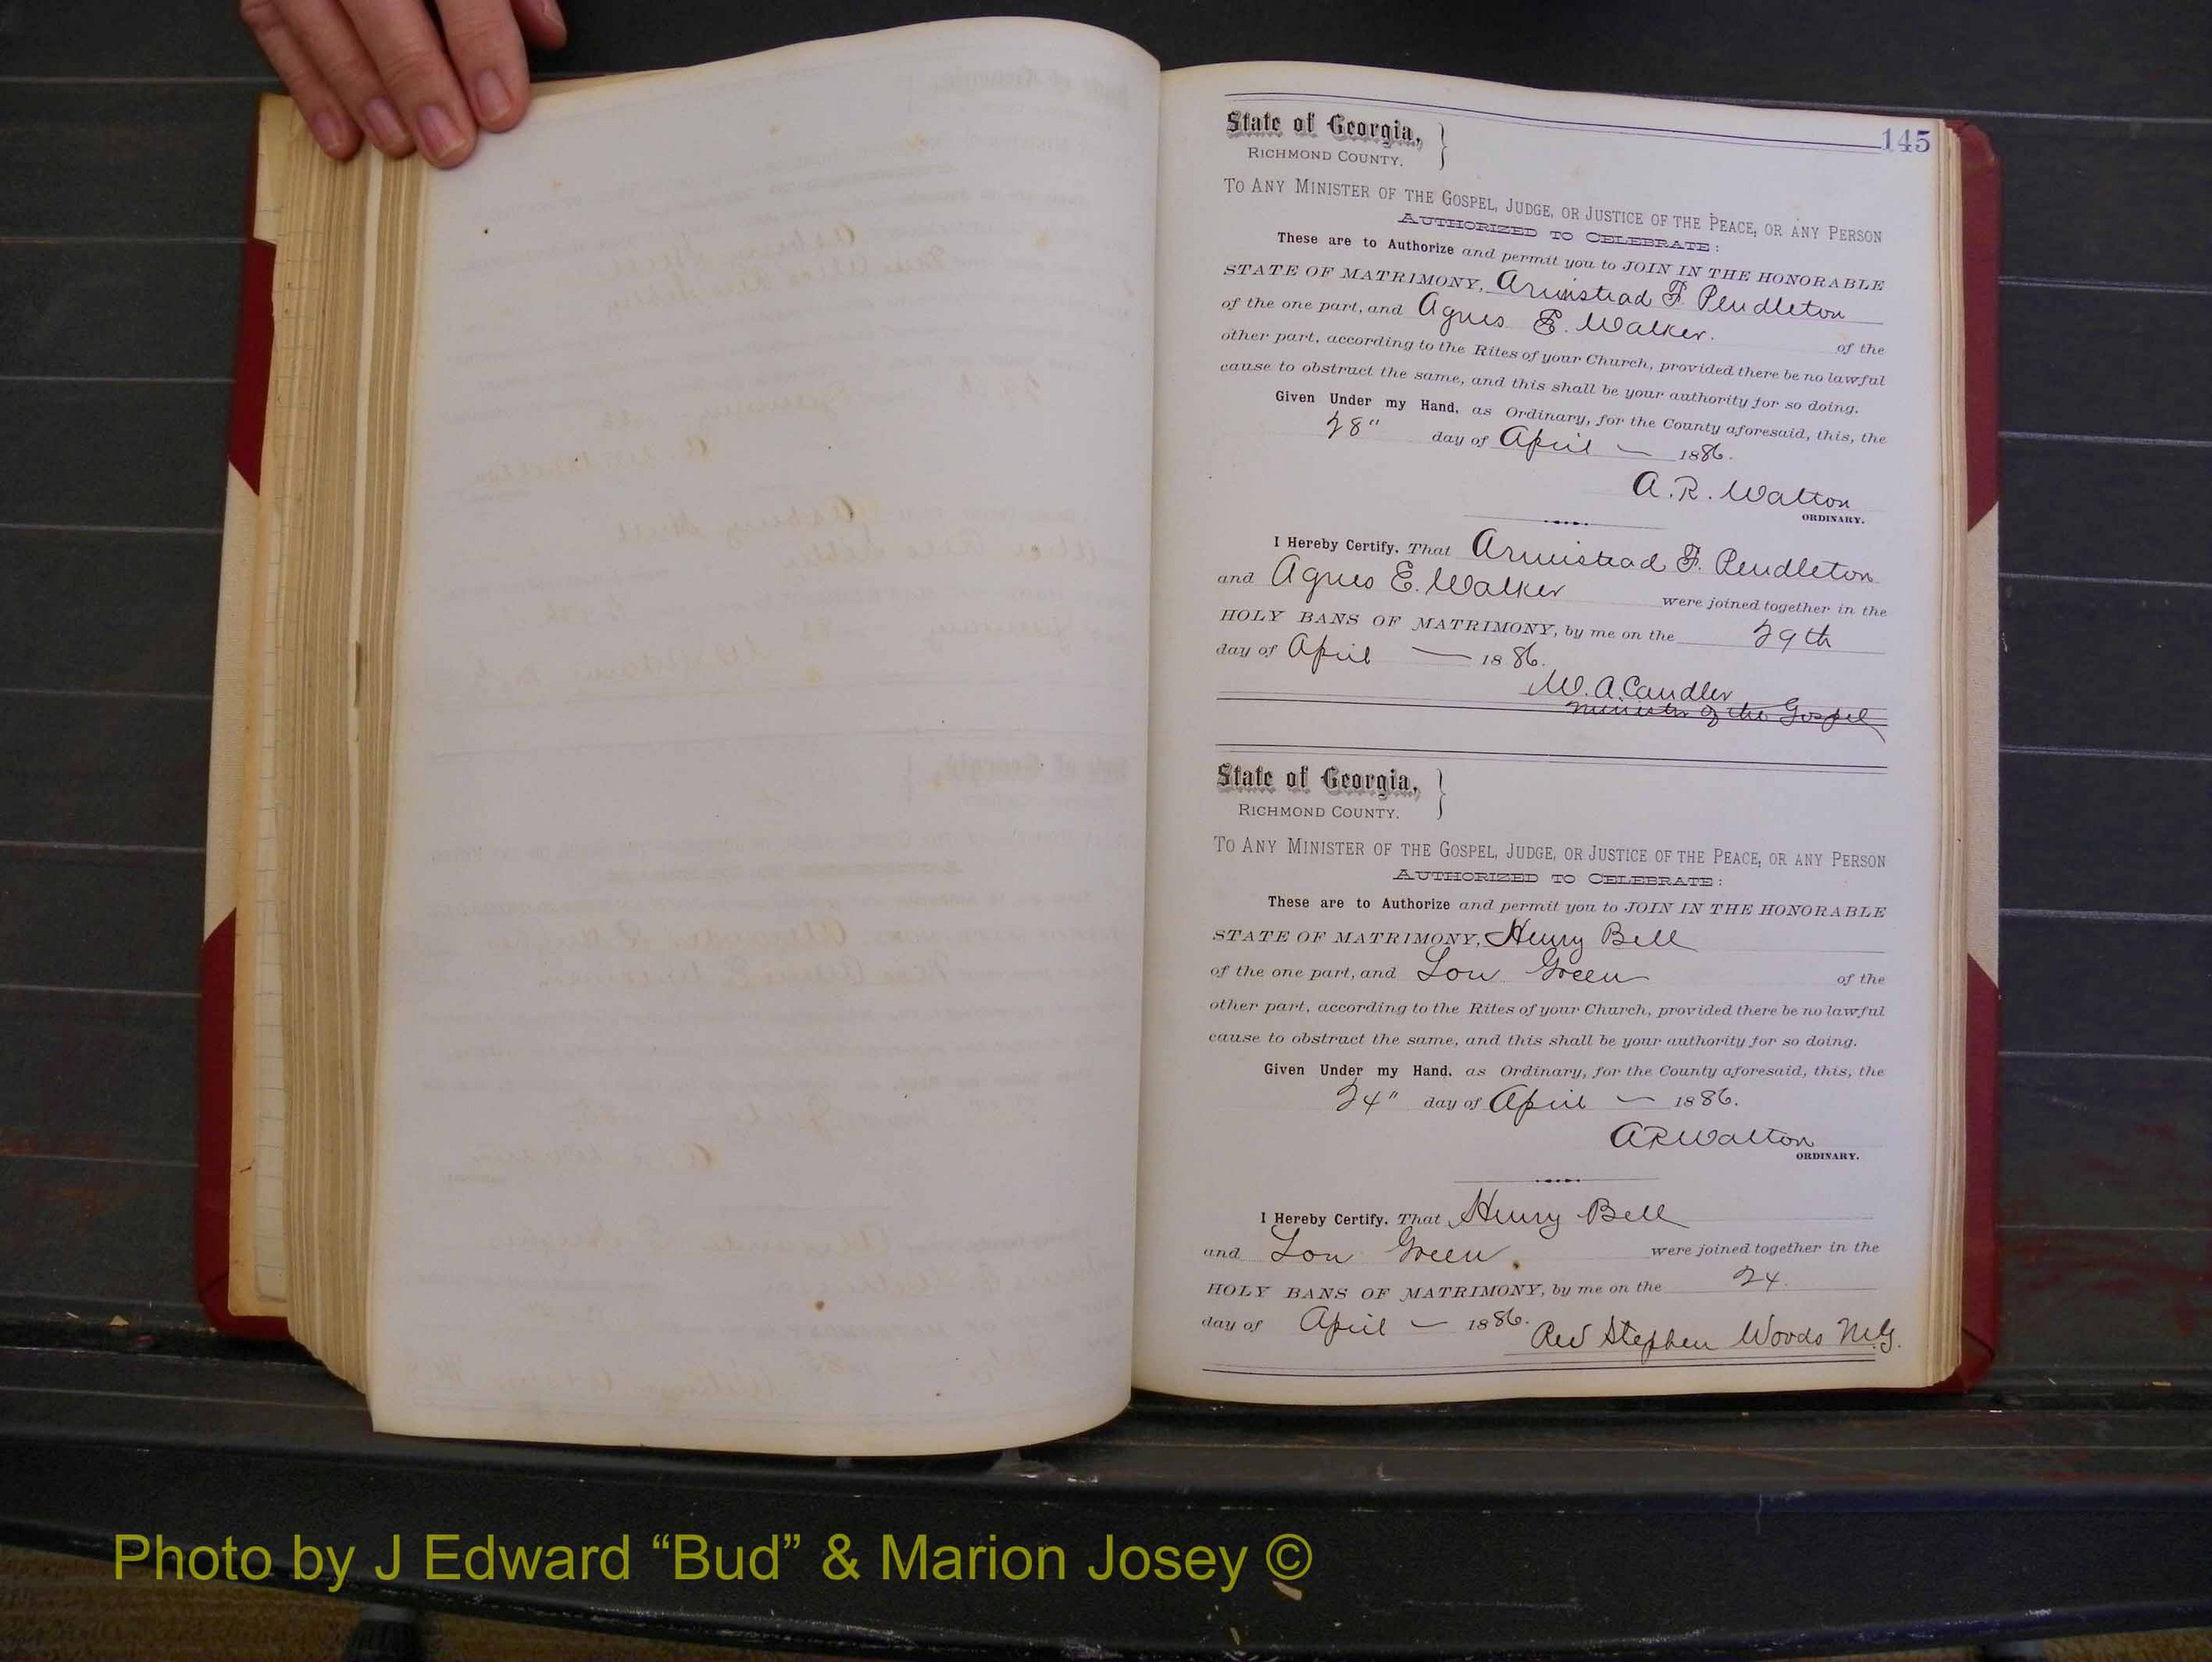 145
State of Georgia,
RICHMOND COUNTY.
TO ANY MINISTER OF THE GOSPEL, JUDGE, OR JUSTICE OF THE PEACE, OR ANY PERSON
AUTHORIZED TO CELEBRATE:
These are to Authorize and permit you to JOIN IN THE HONORABLE
STATE OF MATRIMONY, Armistead F. Pendleton
of the one part, and Agnes E. Walker. of the
other part, according to the Rites of your Church, provided there be no lawful
cause to obstruct the same, and this shall be your authority for so doing.
Given Under my Hand, as Ordinary, for the County aforesaid, this, the
28" day of April — 1886.
A. R. Walton
ORDINARY.
I Hereby Certify, That Armistead F. Pendleton
and Agnes E. Walker were joined together in the
HOLY BANS OF MATRIMONY, by me on the 29th
day of April — 1886.
W. A. Candler
Minister of the Gospel
State of Georgia,
RICHMOND COUNTY.
TO ANY MINISTER OF THE GOSPEL, JUDGE, OR JUSTICE OF THE PEACE, OR ANY PERSON
AUTHORIZED TO CELEBRATE:
These are to Authorize and permit you to JOIN IN THE HONORABLE
STATE OF MATRIMONY, Henry Bell
of the one part, and Lou Green of the
other part, according to the Rites of your Church, provided there be no lawful
cause to obstruct the same, and this shall be your authority for so doing.
Given Under my Hand, as Ordinary, for the County aforesaid, this, the
24" day of April — 1886.
A R Walton
ORDINARY.
I Hereby Certify, That Henry Bell
and Lou Green. were joined together in the
HOLY BANS OF MATRIMONY, by me on the 24.
day of April — 1886.
Rev Stephen Woods M.G.
Photo by J Edward “Bud” & Marion Josey ©